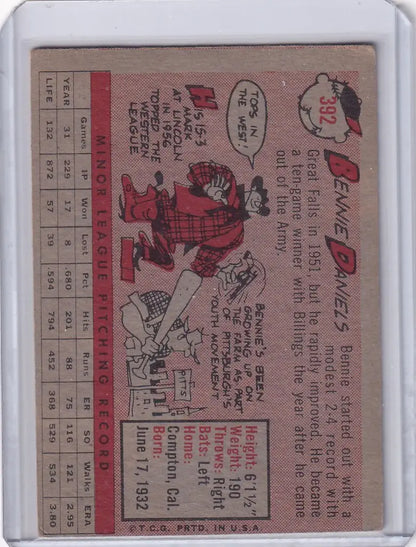 392
BENNIE DANIELS
Bennie started out with a
modest 2-4 record with
Great Falls in 1951, but he rapidly improved. He became
a ten-game winner with Billings the year after he came
out of the Army.
TOPS IN
THE WEST!
HIS 15-3
MARK
AT LINCOLN
IN 1956
TOPPED THE
WESTERN
LEAGUE
BENNIE'S BEEN
GROWING UP ON
THE FARM AS PART
OF PITTSBURGH'S
YOUTH MOVEMENT
PITTS
Height: 6'1½"
Weight: 190
Throws: Right
Bats: Left
Home:
Compton, Cal.
Born:
June 17, 1932
MINOR LEAGUE PITCHING RECORD
Games IP Won Lost Pct Hits Runs ER SO Walks ERA
YEAR 31 229 17 8 .680 201 88 75 116 121 2.95
LIFE 132 872 57 39 .594 794 452 368 529 534 3.80
© T.C.G. PRTD. IN U.S.A.